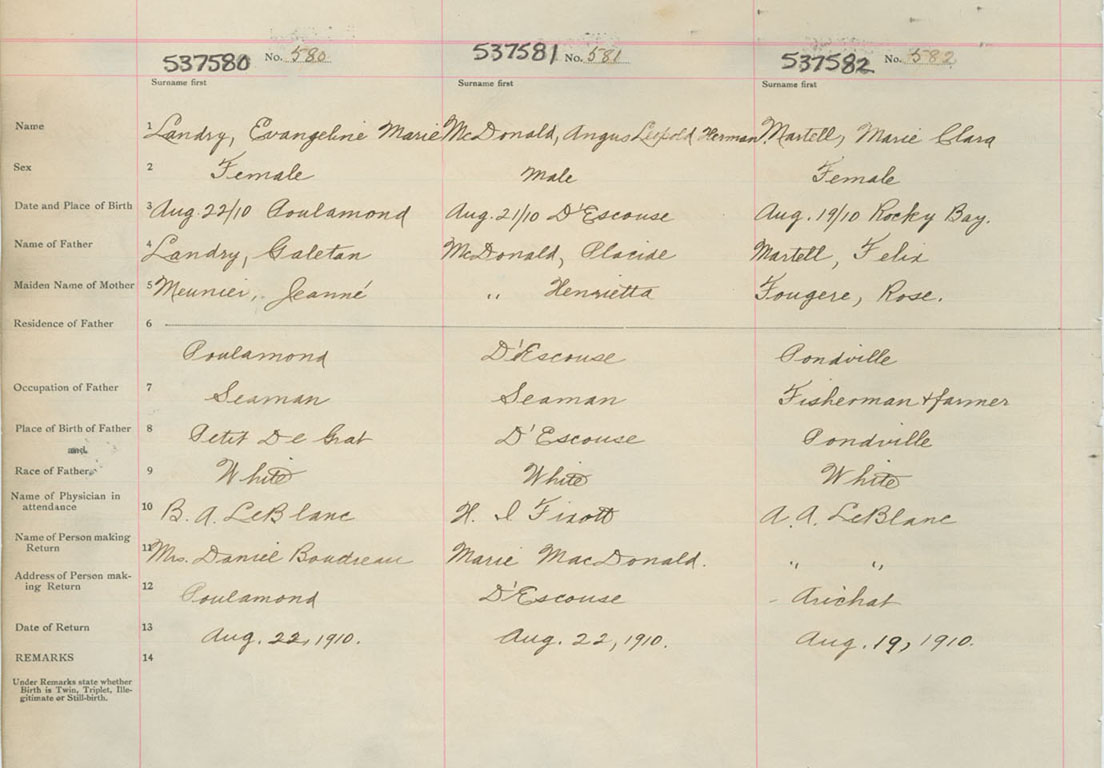 537580 No. 580 537581 No. 581 537582 No. 582
Surname first Surname first Surname first
Name 1 Landry, Evangeline Marie McDonald, Angus Leopold Herman Martell, Marie Clara
Sex 2 Female Male Female
Date and Place of Birth 3 Aug. 22/10 Poulamond Aug. 21/10 D'Escouse Aug. 19/10 Rocky Bay.
Name of Father 4 Landry, Galetan McDonald, Placide Martell, Felix
Maiden Name of Mother 5 Meunier, Jeanné " Henrietta Fougere, Rose.
Residence of Father 6
Poulamond D'Escouse Pondville
Occupation of Father 7 Seaman Seaman Fisherman & farmer
Place of Birth of Father 8 Petit De Grat D'Escouse Pondville
and
Race of Father 9 White White White
Name of Physician in
attendance 10 B. A. LeBlanc H. I A. A. LeBlanc
Name of Person making
Return 11 Mrs. Daniel Boudreau Marie MacDonald. " "
Address of Person mak-
ing Return 12 Poulamond D'Escouse - Arichat
Date of Return 13 Aug. 22, 1910. Aug. 22, 1910. Aug. 19, 1910.
REMARKS 14
Under Remarks state whether
Birth is Twin, Triplet, Ille-
gitimate or Still-birth.